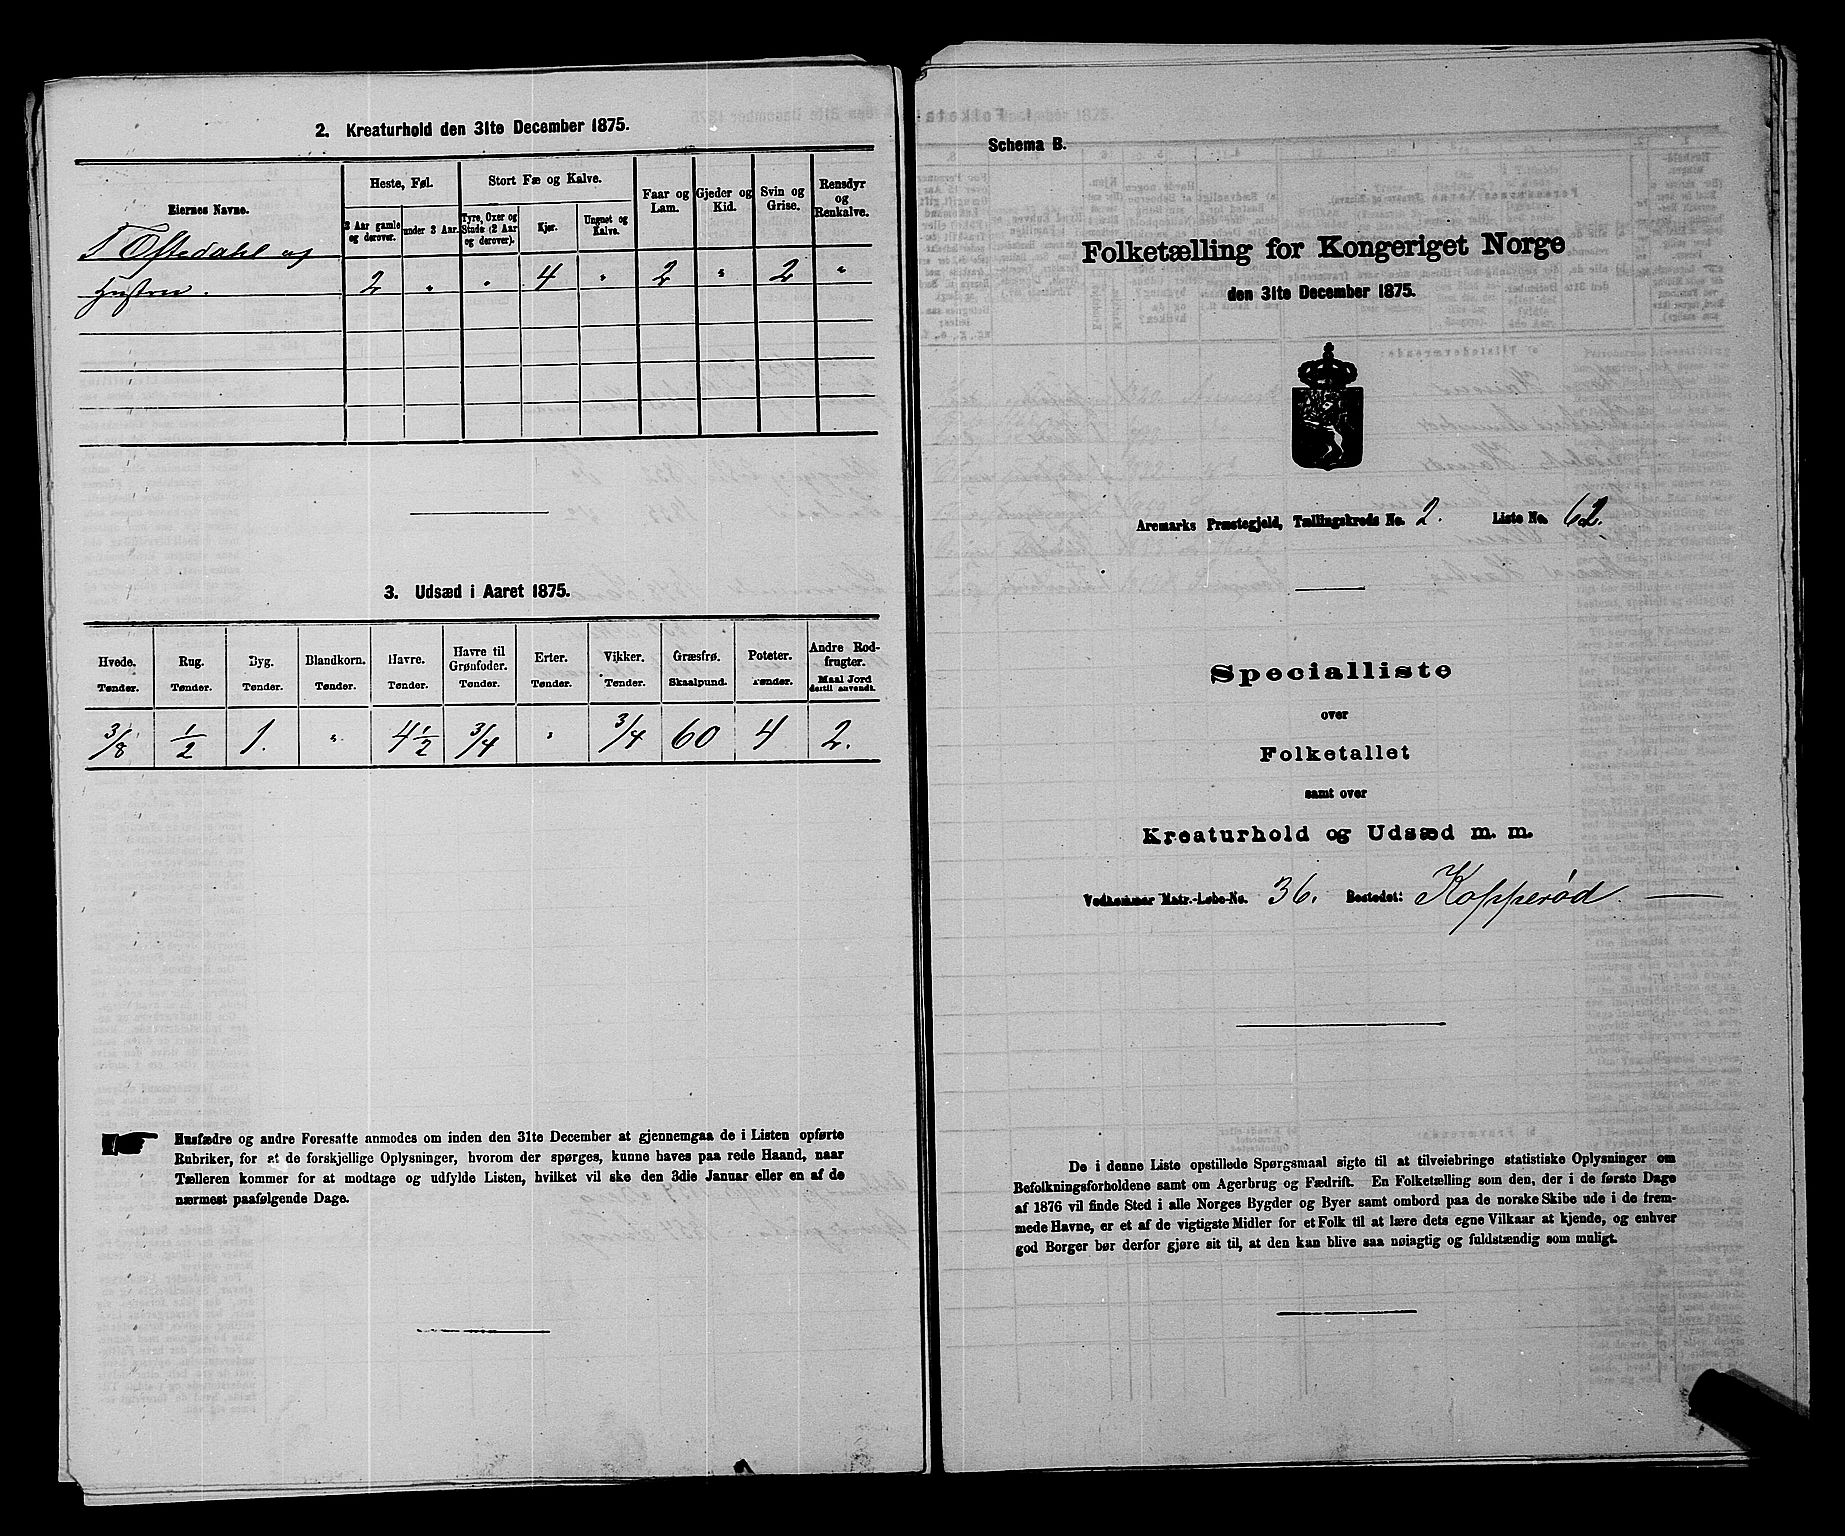 2. Kreaturhold den 31te December 1875.
Eiernes Navne.
Heste, Føl.
Stort Fæ og Kalve.
Faar og Lam.
Gjeder og Kid.
Svin og Grise.
Rensdyr og Renkalve.
3 Aar gamle og derover.
under 3 Aar.
Tyre, Oxer og Stude (2 Aar og derover).
Kjør.
Ungnøt og Kalve.
T Oftedahl og
Hustru. 2 " " 4 " 2 " 2 "
3. Udsæd i Aaret 1875.
Hvede. Rug. Byg. Blandkorn. Havre. Havre til Grønfoder. Erter. Vikker. Græsfrø. Poteter. Andre Rodfrugter.
Tønder. Tønder. Tønder. Tønder. Tønder. Tønder. Tønder. Tønder. Skaalpund. Tønder. Maal Jord dertil anvendt.
3/8 1/2 1. " 4 1/2 3/4 " 3/4 60 4 2.
Husfædre og andre Foresatte anmodes om inden den 31te December at gjennemgaa de i Listen opførte
Rubriker, for at de forskjellige Oplysninger, hvorom der spørges, kunne haves paa rede Haand, naar
Tælleren kommer for at modtage og udfylde Listen, hvilket vil ske den 3die Januar eller en af de
nærmest paafølgende Dage.
Schema B.
Folketælling for Kongeriget Norge
den 31te December 1875.
Aremarks Præstegjeld, Tællingskreds No. 2. Liste No. 62.
Specialliste
over
Folketallet
samt over
Kreaturhold og Udsæd m. m.
Vedkommer Matr.-Løbe-No. 36. Bostedet: Kopperød.
De i denne Liste opstillede Spørgsmaal sigte til at tilveiebringe statistiske Oplysninger om
Befolkningsforholdene samt om Agerbrug og Fædrift. En Folketælling som den, der i de første Dage
af 1876 vil finde Sted i alle Norges Bygder og Byer samt ombord paa de norske Skibe ude i de frem-
mede Havne, er et af de vigtigste Midler for et Folk til at lære dets egne Vilkaar at kjende, og enhver
god Borger bør derfor gjøre sit til, at den kan blive saa nøiagtig og fuldstændig som muligt.